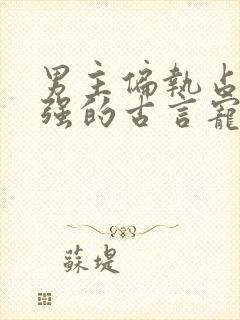 男主偏执占
强的古言寵
蘇堤